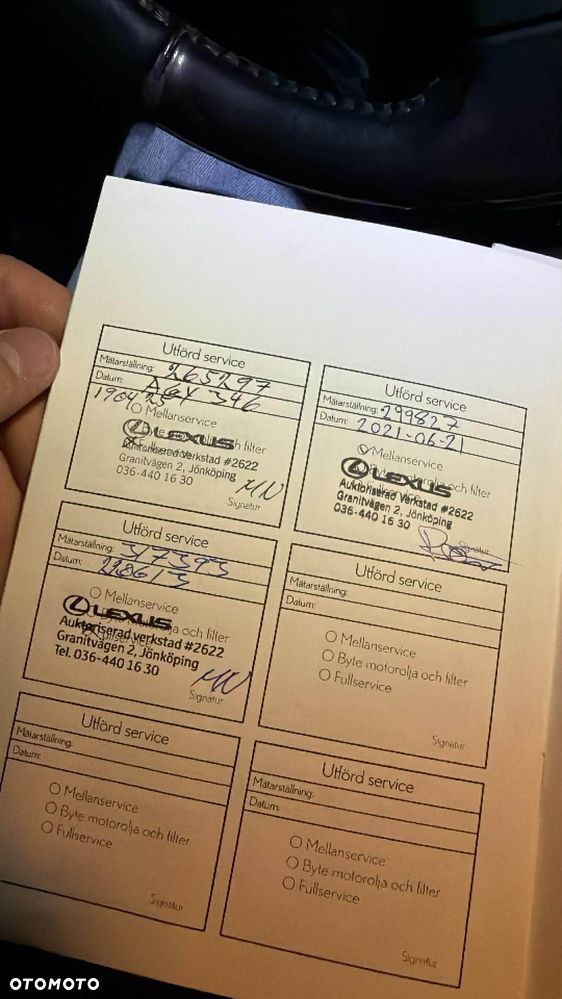 Utförd service
Mätarställning: 265297
Datum: AGX 346
190425
Mellanservice
LEXUS
och filter
Auktoriserad verkstad #2622
Granitvägen 2, Jönköping
036-440 16 30
Signatur
Utförd service
Mätarställning: 299827
Datum: 2021-06-21
Mellanservice
LEXUS
och filter
Auktoriserad verkstad #2622
Granitvägen 2, Jönköping
036-440 16 30
Signatur
Utförd service
Mätarställning: 317393
Datum: 220613
Mellanservice
LEXUS
och filter
Auktoriserad verkstad #2622
Granitvägen 2, Jönköping
Tel. 036-440 16 30
Signatur
Utförd service
Mätarställning:
Datum:
Mellanservice
Byte motorolja och filter
Fullservice
Signatur
Utförd service
Mätarställning:
Datum:
Mellanservice
Byte motorolja och filter
Fullservice
Signatur
Utförd service
Mätarställning:
Datum:
Mellanservice
Byte motorolja och filter
Fullservice
Signatur
OTOMOTO